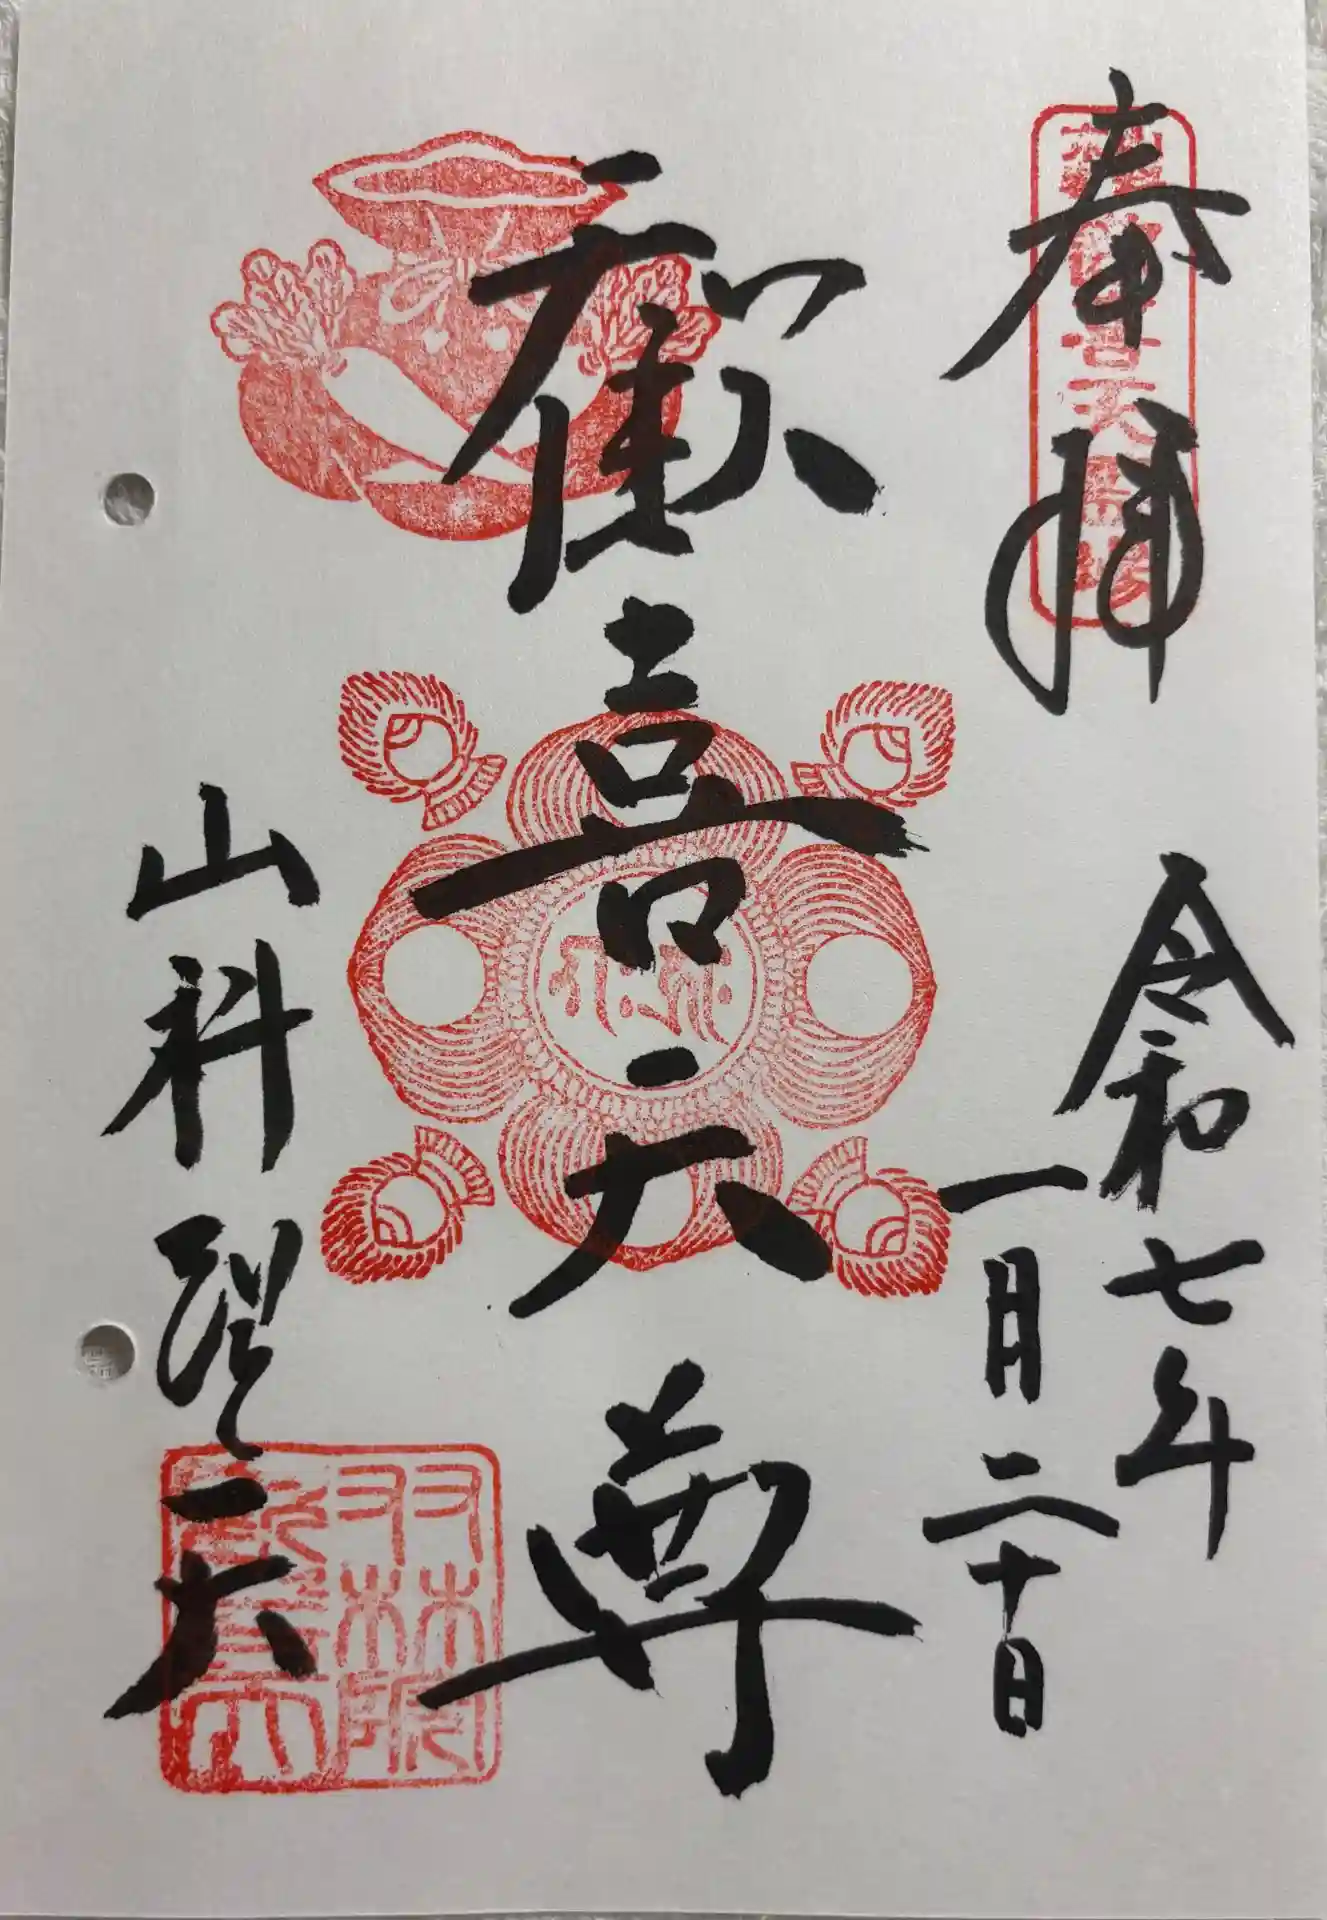 奉拝
令和七年
一月二十日
歡喜天尊
山科聖天
双林院